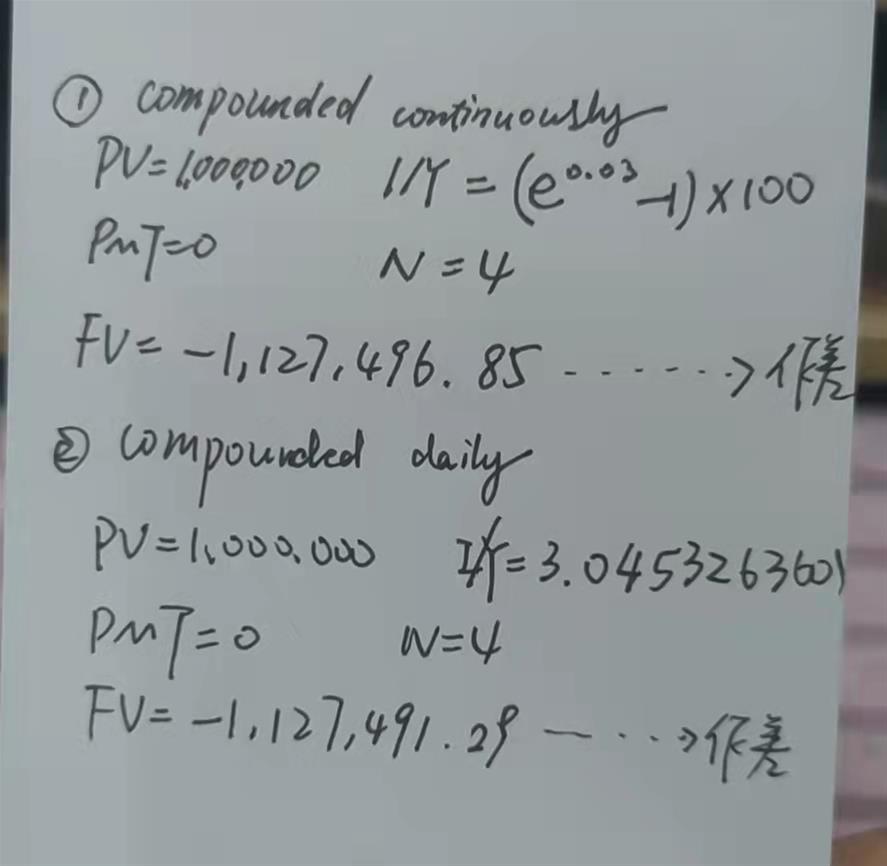 ① compounded continuously
PV=1,000,000 I/Y = (e^0.03 -1)×100
PMT=0 N=4
FV= -1,127,496.85 ·······> 作差
② compounded daily
PV=1,000,000 I/Y=3.045326360
PMT=0 N=4
FV= -1,127,491.29 —···> 作差